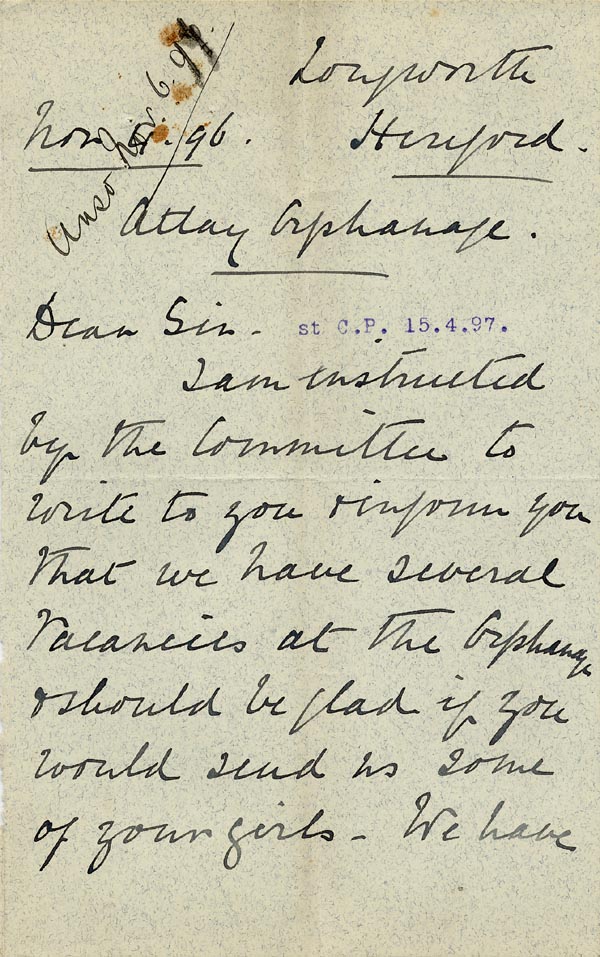 Ansd Nov. 6. 96.
Longworth
Nov. 4. 96.
Hereford.
Attay Orphanage.
Dear Sir -
st C.P. 15.4.97.
I am instructed
by the Committee to
write to you & inform you
that we have several
Vacancies at the Orphanage
& should be glad if you
would send us some
of your girls - We have